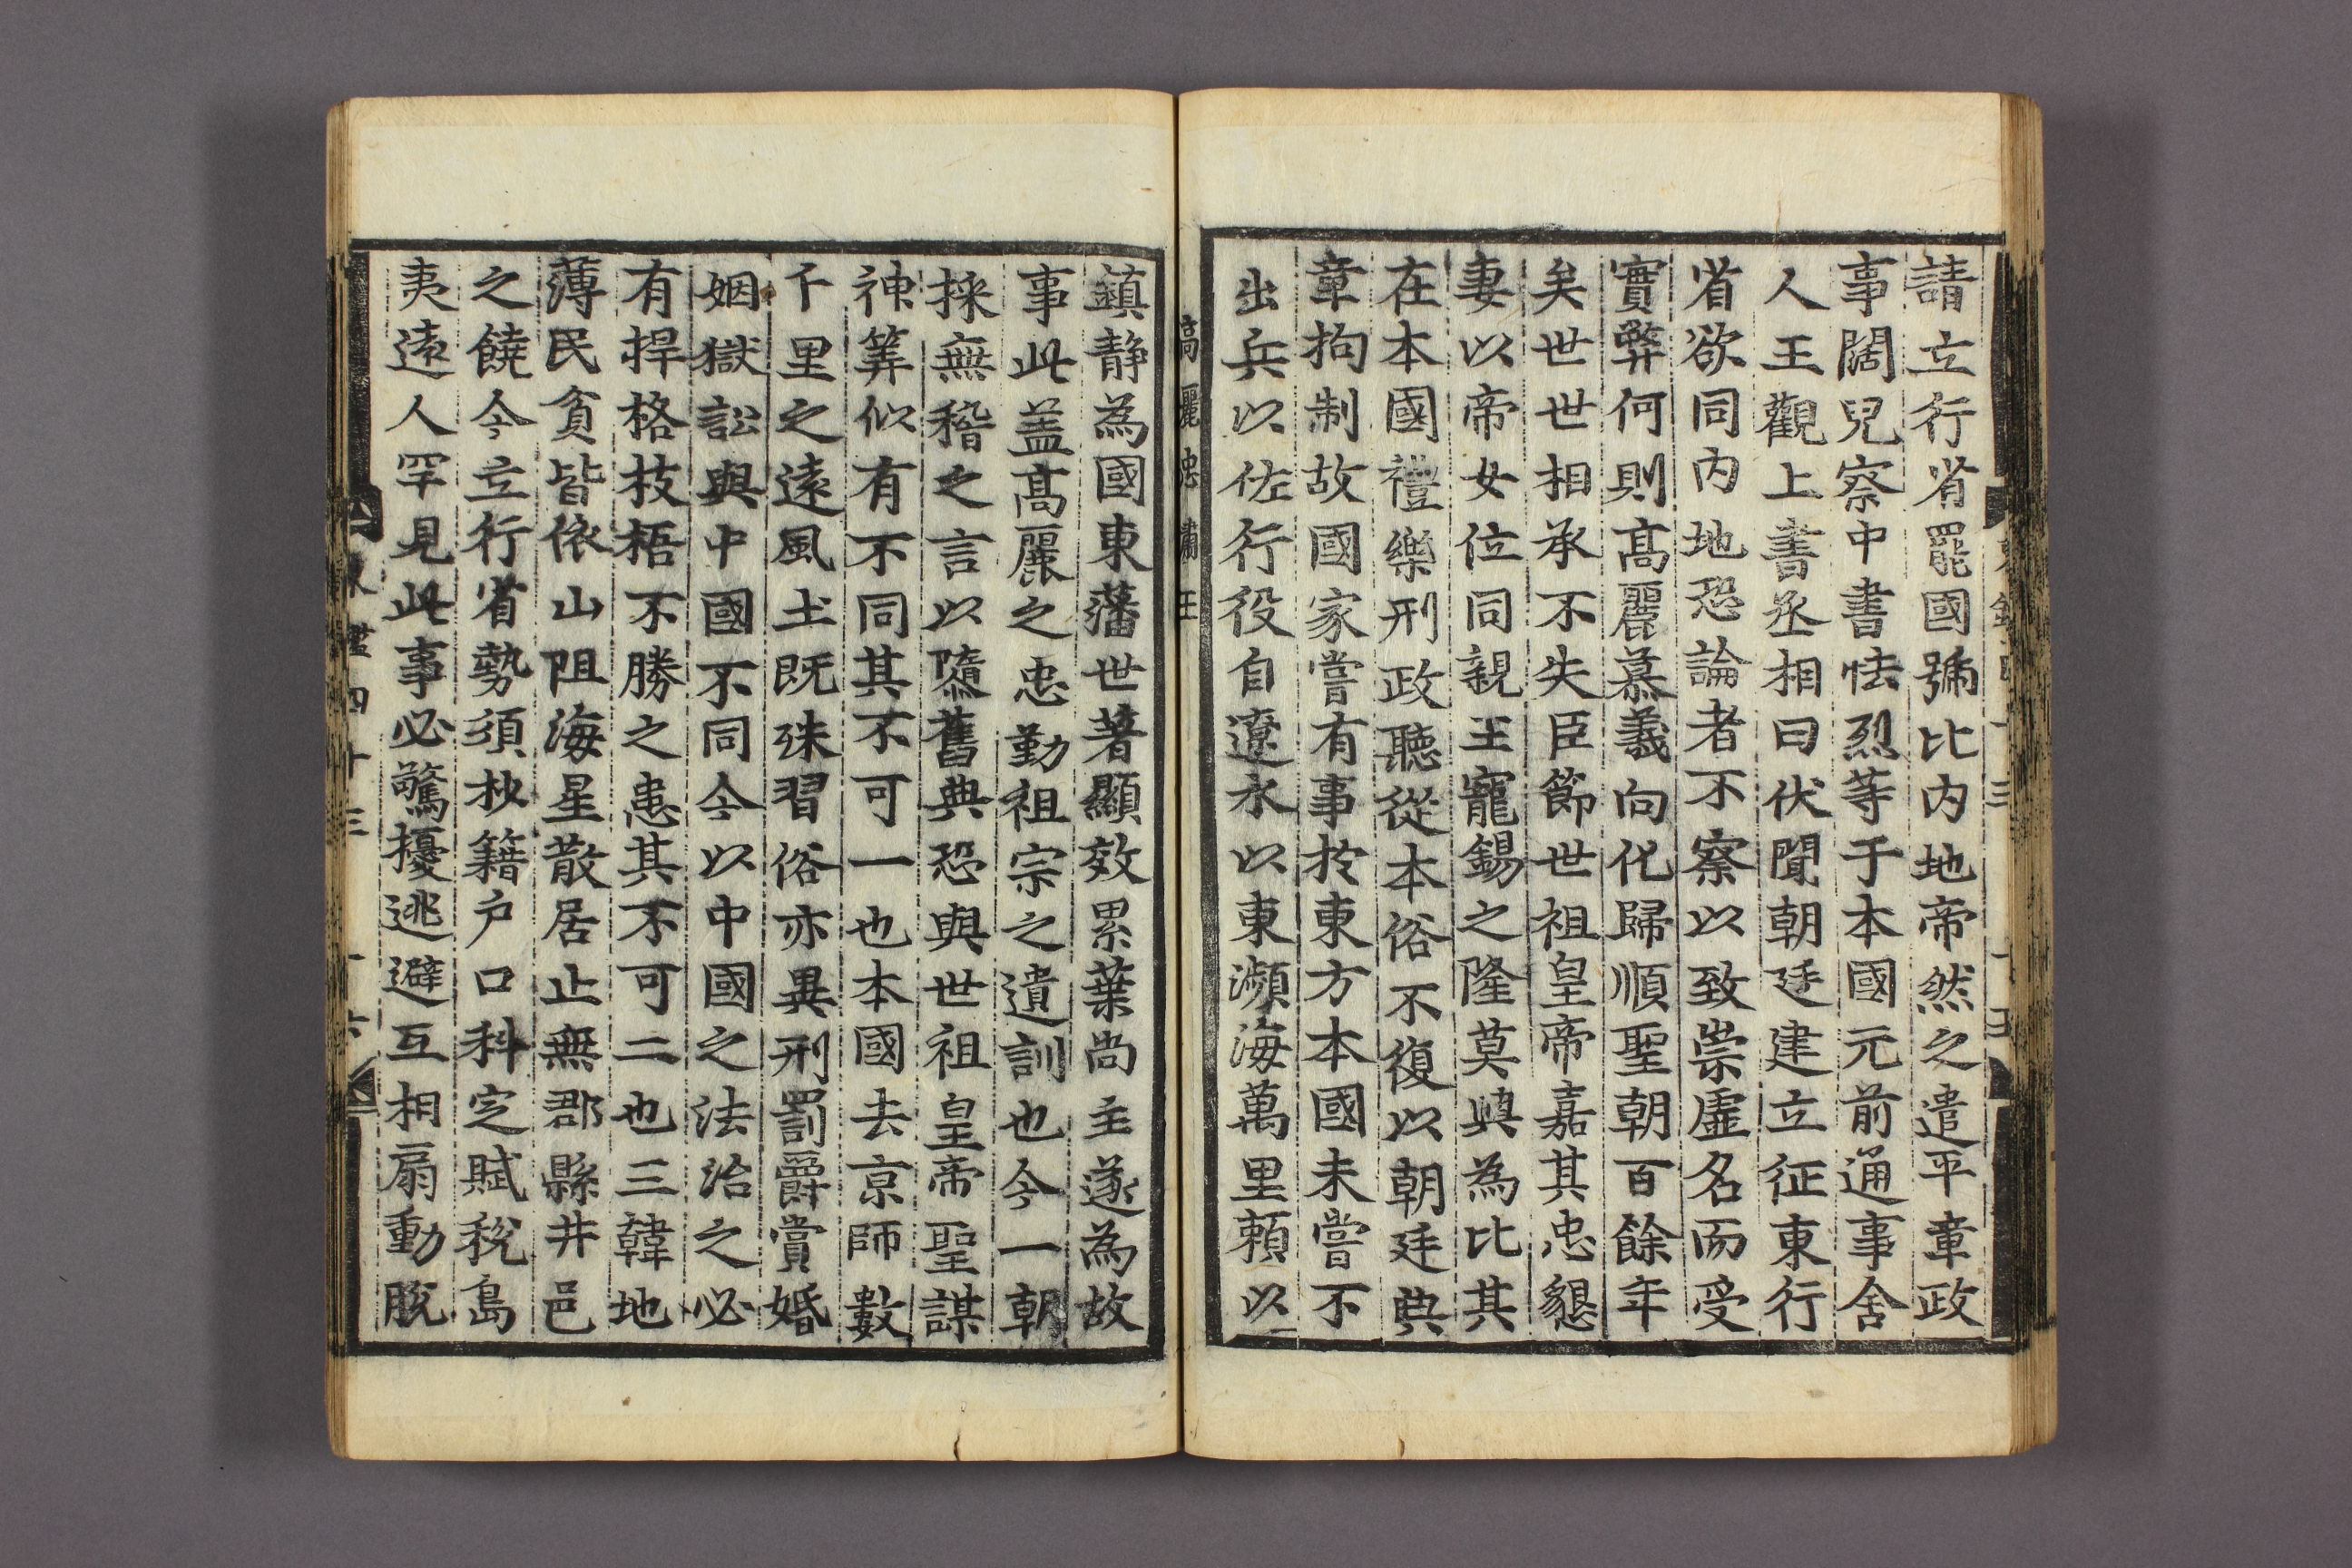 請立行省罷國號比內地帝然之遣平章政
事闊兒察中書怯烈等于本國元前通事舍
人王觀上書丞相曰伏聞朝廷建立征東行
省欲同內地恐論者不察以致崇虛名而受
實弊何則髙麗慕義向化歸順聖朝百餘年
矣世世相承不失臣節世祖皇帝嘉其忠懇
妻以帝女位同親王寵錫之隆莫與為比其
在本國禮樂刑政聽從本俗不復以朝廷典
章拘制故國家嘗有事於東方本國未嘗不
出兵以佐行役自遼水以東瀕海萬里頼以
髙麗忠肅王
鎮静為國東藩世著顯效累葉尚主遂為故
事此盖髙麗之忠勤祖宗之遺訓也今一朝
採無稽之言以隳舊典恐與世祖皇帝聖謀
神筭似有不同其不可一也本國去京師數
千里之遠風土既殊習俗亦異刑罰爵賞婚
姻獄訟與中國不同今以中國之法治之必
有捍格枝梧不勝之患其不可二也三韓地
薄民貧皆依山阻海星散居止無郡縣井邑
之饒今立行省勢須抄籍户口科定賦稅島
夷遠人罕見此事必驚擾逃避互相扇動脫
東鑑四十三 十六